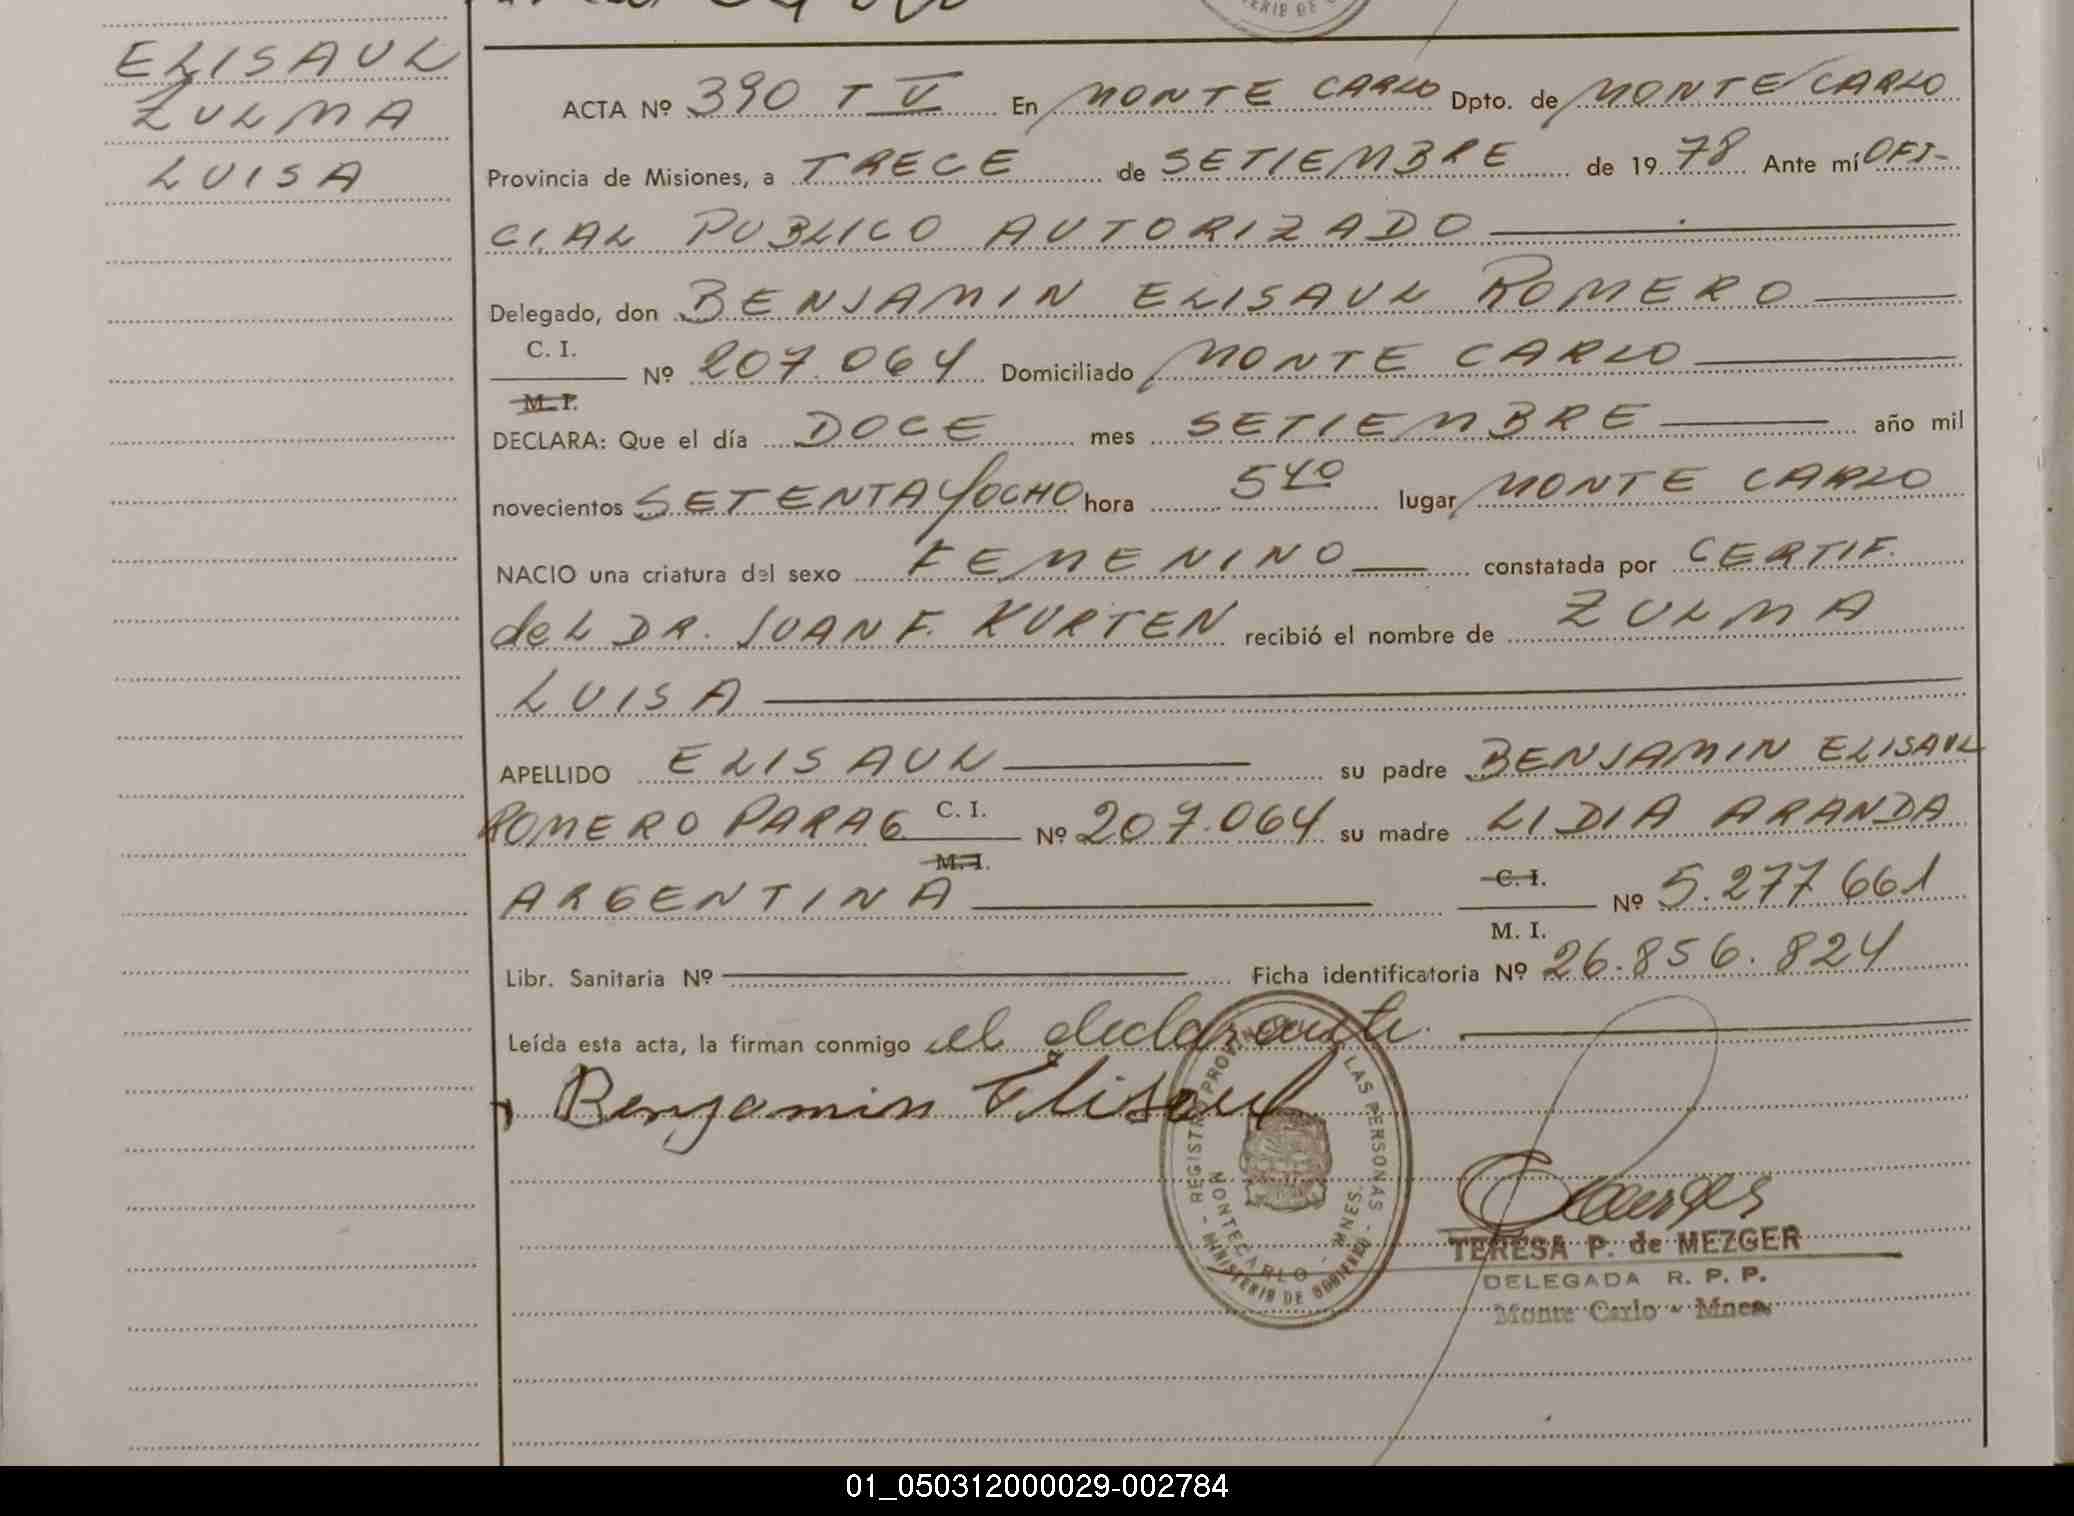 ELISAUL
ZULMA
LUISA
ACTA Nº 390 T V En MONTE CARLO Dpto. de MONTE CARLO
Provincia de Misiones, a TRECE de SETIEMBRE de 1978 Ante mí OFI-
CIAL PUBLICO AUTORIZADO
Delegado, don BENJAMIN ELISAUL ROMERO
C. I.
Nº 207.064 Domiciliado MONTE CARLO
M. I.
DECLARA: Que el día DOCE mes SETIEMBRE año mil
novecientos SETENTA Y OCHO hora 5 40 lugar MONTE CARLO
NACIO una criatura del sexo FEMENINO constatada por CERTIF.
deL DR. JUAN F. KURTEN recibió el nombre de ZULMA
LUISA
APELLIDO ELISAUL su padre BENJAMIN ELISAUL
ROMERO PARAG C. I. Nº 207.064 su madre LIDIA ARANDA
M. I.
ARGENTINA C. I. Nº 5.277.661
M. I.
Libr. Sanitaria Nº Ficha identificatoria Nº 26.856.824
Leída esta acta, la firman conmigo el declarante.
Benjamin Elisaul
REGISTRO PROVINCIAL DE LAS PERSONAS - MINISTERIO DE GOBIERNO -
MONTECARLO - MNES.
TERESA P. de MEZGER
DELEGADA R. P. P.
Monte Carlo - Mnes.
01_050312000029-002784